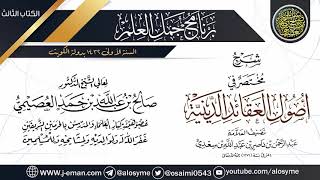 الكتاب الثالث
برنامج جمل العلم
السنة الأولى ١٤٣٦ بدولة الكويت
شرح
مختصر في
أصول العقائد الدينية
تصنيف العلامة
عبد الرحمن بن ناصر بن عبد الله بن سعدي
لمعالي الشيخ الدكتور
صالح بن عبد الله بن حمد العصيمي
عضو هيئة كبار العلماء والمدرس بالحرمين الشريفين
غفر الله له ولوالديه ولمشايخه وللمسلمين
www.j-eman.com
@osaimi0543
@alosyme
youtube.com/alosyme